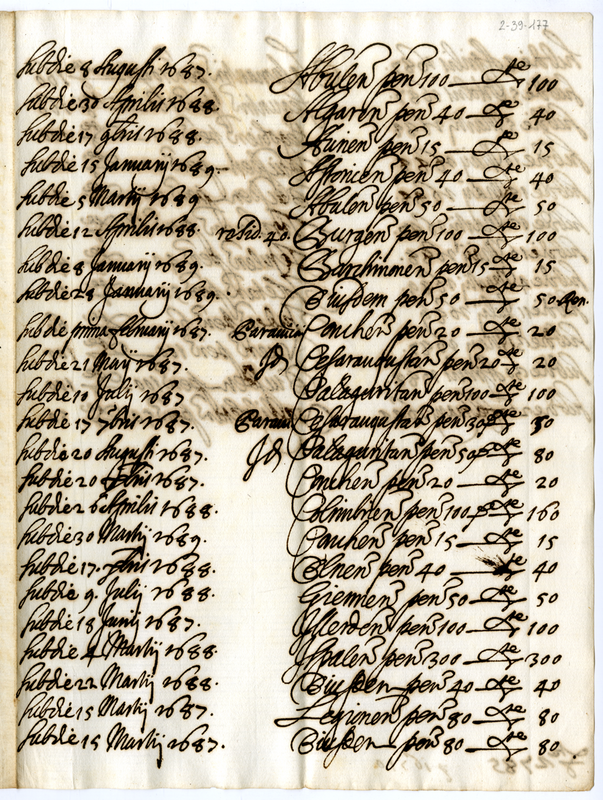 2-39-177
sub die 8 Augusti 1687. Abulen pen 100 — 100
sub die 30 Aprilis 1688. Algaren pen 40 — 40
sub die 17 9bris 1688. pen 15 — 15
sub die 15 Januarij 1689. Astoricen pen 40 — 40
sub die 5 Martij 1689 Abulen pen 50 — 50
sub die 12 Aprilis 1688. resid. 40. Burgen pen 100 — 100
sub die 8 Januarij 1689. pen 15 — 15
sub die 28 Januarij 1689. Eiusdem pen 50 — 50
sub die prima februarij 1687. Conchen pen 20 — 20
sub die 21 Maij 1687. Jd Cesaraugustan pen 20 — 20
sub die 10 Julij 1687 Calaguritan pen 100 — 100
sub die 17 1687. Cesaraugustan pen
sub die 20 Augusti 1687. Jd Calaguritan pen — 80
sub die 20 1687. Conchen pen 20 — 20
sub die 26 Aprilis 1688. Colimbrien pen 100 — 160
sub die 30 Martij 1689. Cauhen pen 15 — 15
sub die 17. 1688. pen 40 — 40
sub die 9. Julij 1688. Giennen pen 50 — 50
sub die 18 Junij 1687. Illerden pen 100 — 100
sub die 4 Martij 1688. Ispalen pen 300 — 300
sub die 22 Martij 1688. Eiusden pen 40 — 40
sub die 15 Martij 1687. Legionen pen 80 — 80
sub die 15 Martij 1687. Eiusden pen 80 — 80